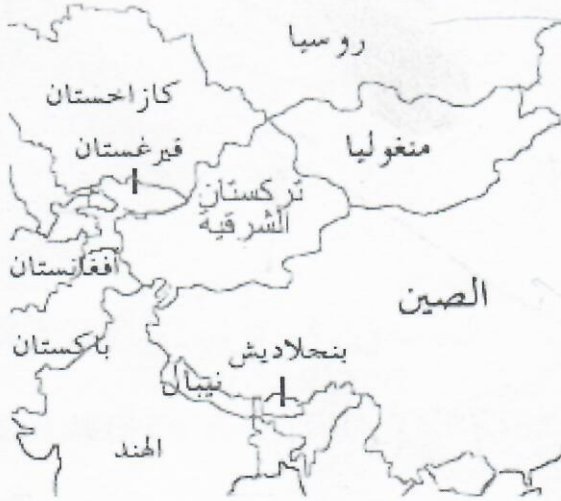 روسيا
كازاخستان
منغوليا
قيرغستان
تركستان
الشرقية
أفغانستان
الصين
باكستان
بنجلاديش
نيبال
الهند